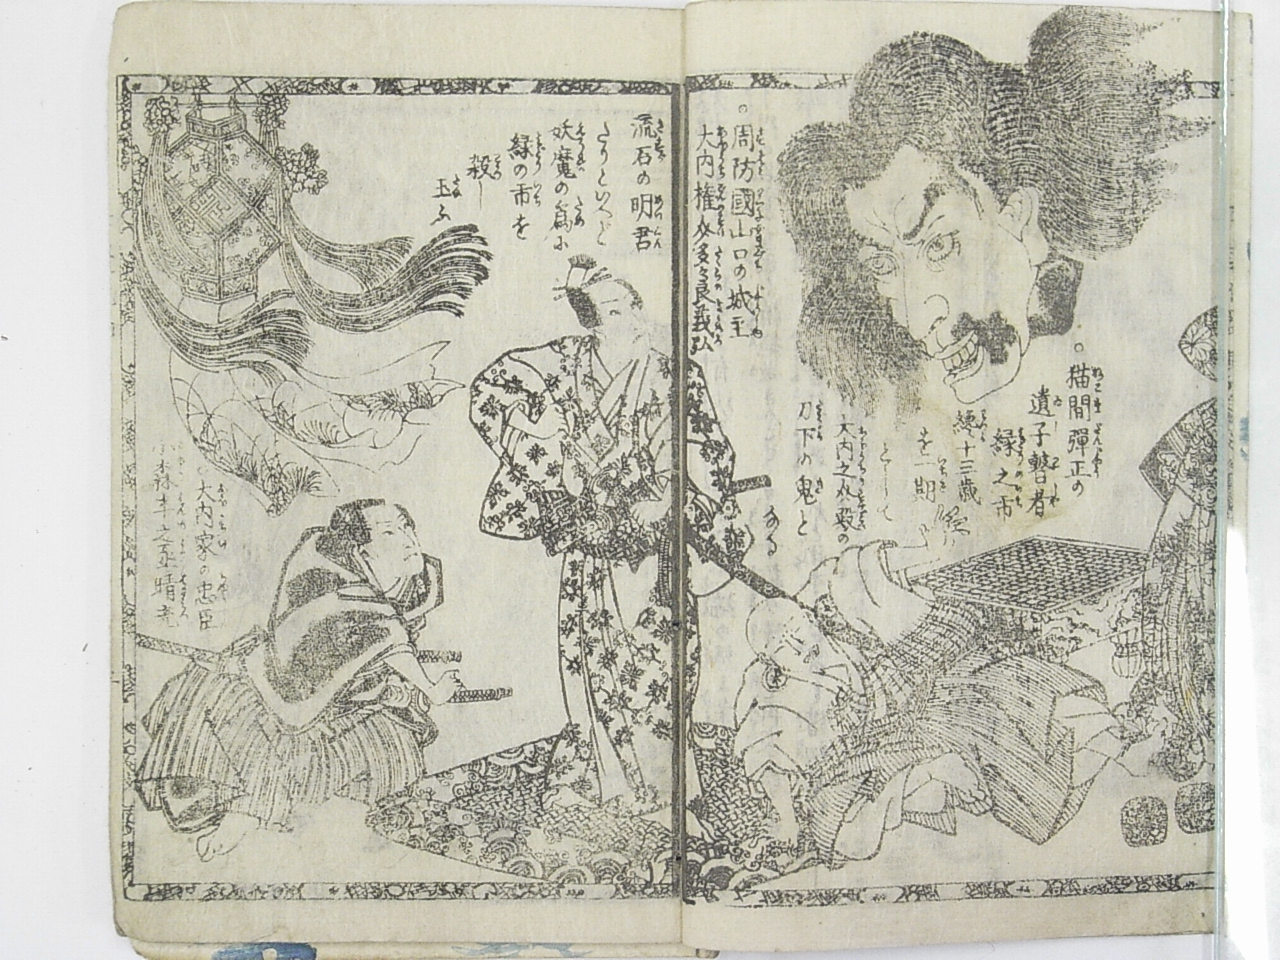 猫間彈正の
遺子瞽者
緑之市
纔十三歳
を一期
として
大内之丞殿の
刀下の鬼と
なる
周防國山口の城主
大内權之丞多々良義弘
流石の明君
たりといへど
妖魔の爲に
緑の市を
殺し
玉ふ
大内家の忠臣
小森半之丞晴光